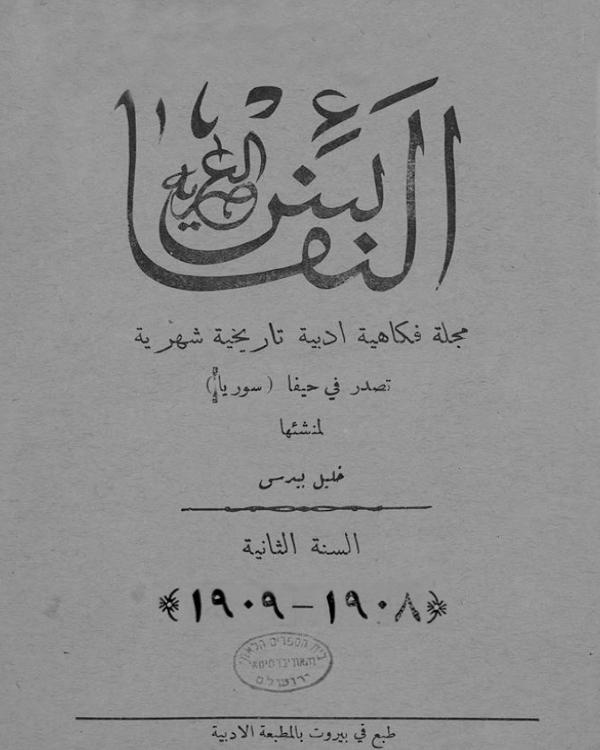 النفائس العصرية
مجلة فكاهية ادبية تاريخية شهرية
تصدر في حيفا (سوريا)
لمنشئها
خليل بيدس
السنة الثانية
١٩٠٨ – ١٩٠٩
בית הספרים הלאומי
והאוניברסיטאי
ירושלם
طبع في بيروت بالمطبعة الادبية